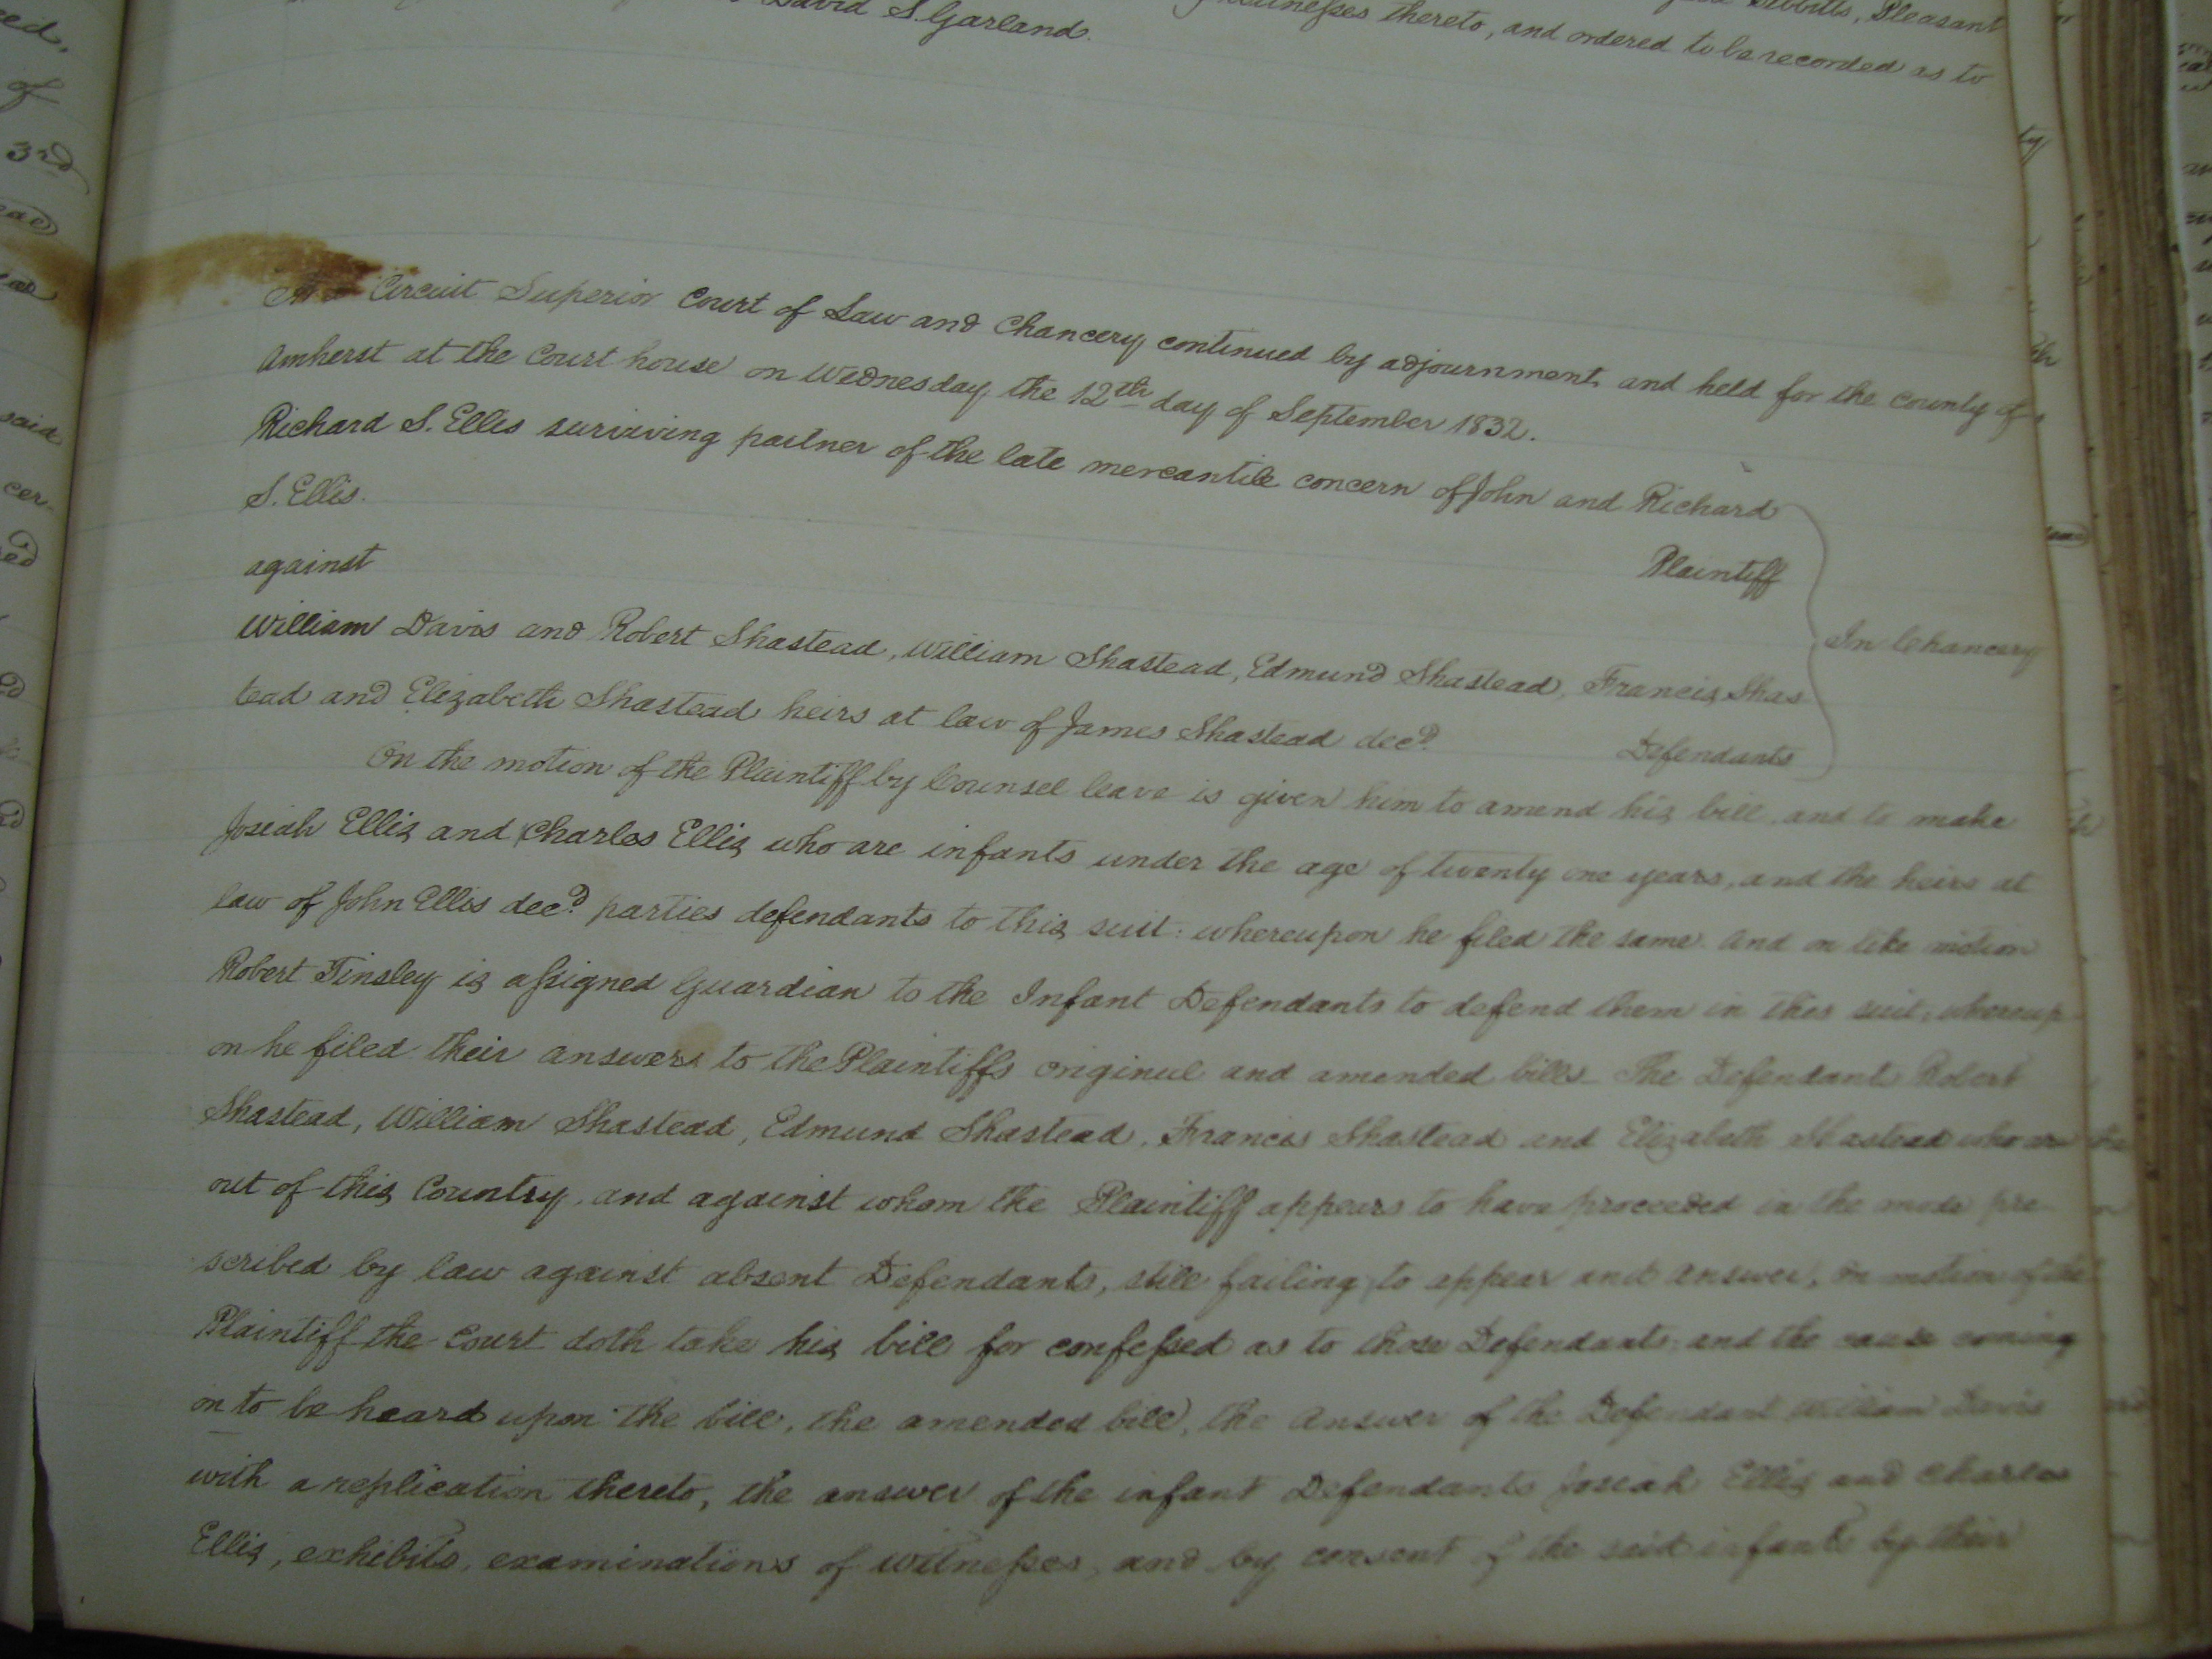 David S. Garland.
witnesses thereto, and ordered to be recorded as to
At a Circuit Superior Court of Law and Chancery continued by adjournment, and held for the county of
Amherst at the Court house on Wednesday the 12th day of September 1832.
Richard S. Ellis surviving partner of the late mercantile concern of John and Richard
S. Ellis.
Plaintiff
against
In Chancery
William Davis and Robert Shastead, William Shastead, Edmund Shastead, Francis Shas
tead and Elizabeth Shastead heirs at law of James Shastead decd.
Defendants
On the motion of the Plaintiff by Counsel leave is given him to amend his bill, and to make
Josiah Ellis and Charles Ellis who are infants under the age of twenty one years, and the heirs at
law of John Ellis decd. parties defendants to this suit: whereupon he filed the same. And on like motion
Robert Tinsley is assigned Guardian to the Infant Defendants to defend them in this suit; whereup-
on he filed their answers to the Plaintiffs original and amended bills– The Defendant Robert
Shastead, William Shastead, Edmund Shastead, Francis Shastead and Elizabeth Shastead who are
out of this Country, and against whom the Plaintiff appears to have proceeded in the mode pre
scribed by law against absent Defendants, still failing to appear and answer, on motion of the
Plaintiff the Court doth take his bill for confessed as to those Defendants; and the cause coming
on to be heard upon the bill, the amended bill, the answer of the Defendant William Davis
with a replication thereto, the answer of the infant Defendants Josiah Ellis and Charles
Ellis, exhibits, examinations of witnesses, and by consent of the said infants by their